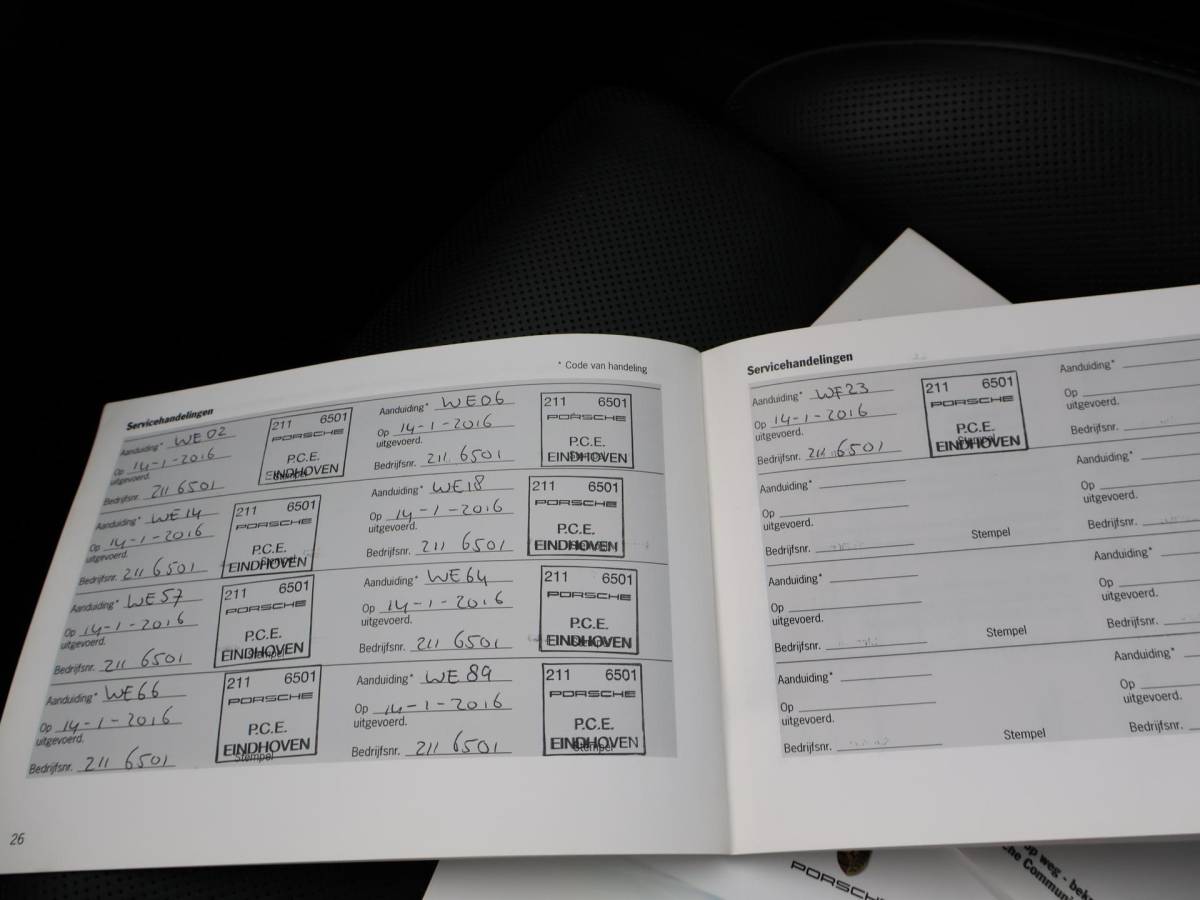 * Code van handeling
Servicehandelingen
Aanduiding* WE02
Op 14-1-2016
uitgevoerd.
Bedrijfsnr. 211 6501
211 6501
PORSCHE
P.C.E.
EINDHOVEN
Stempel
Aanduiding* WE06
Op 14-1-2016
uitgevoerd.
Bedrijfsnr. 211 6501
211 6501
PORSCHE
P.C.E.
EINDHOVEN
Stempel
Aanduiding* WE14
Op 14-1-2016
uitgevoerd.
Bedrijfsnr. 211 6501
211 6501
PORSCHE
P.C.E.
EINDHOVEN
Stempel
Aanduiding* WE18
Op 14-1-2016
uitgevoerd.
Bedrijfsnr. 211 6501
211 6501
PORSCHE
P.C.E.
EINDHOVEN
Stempel
Aanduiding* WE57
Op 14-1-2016
uitgevoerd.
Bedrijfsnr. 211 6501
211 6501
PORSCHE
P.C.E.
EINDHOVEN
Stempel
Aanduiding* WE64
Op 14-1-2016
uitgevoerd.
Bedrijfsnr. 211 6501
211 6501
PORSCHE
P.C.E.
EINDHOVEN
Stempel
Aanduiding* WE66
Op 14-1-2016
uitgevoerd.
Bedrijfsnr. 211 6501
211 6501
PORSCHE
P.C.E.
EINDHOVEN
Stempel
Aanduiding* WE89
Op 14-1-2016
uitgevoerd.
Bedrijfsnr. 211 6501
211 6501
PORSCHE
P.C.E.
EINDHOVEN
Stempel
26
Servicehandelingen
Aanduiding* WF23
Op 14-1-2016
uitgevoerd.
Bedrijfsnr. 211 6501
211 6501
PORSCHE
P.C.E.
EINDHOVEN
Stempel
Aanduiding*
Op
uitgevoerd.
Bedrijfsnr.
Aanduiding*
Op
uitgevoerd.
Bedrijfsnr.
Stempel
Aanduiding*
Op
uitgevoerd.
Bedrijfsnr.
Aanduiding*
Op
uitgevoerd.
Bedrijfsnr.
Stempel
Aanduiding*
Op
uitgevoerd.
Bedrijfsnr.
Aanduiding*
Op
uitgevoerd.
Bedrijfsnr.
Stempel
Aanduiding*
Op
uitgevoerd.
Bedrijfsnr.
PORSCHE
op weg - bek
he Commun